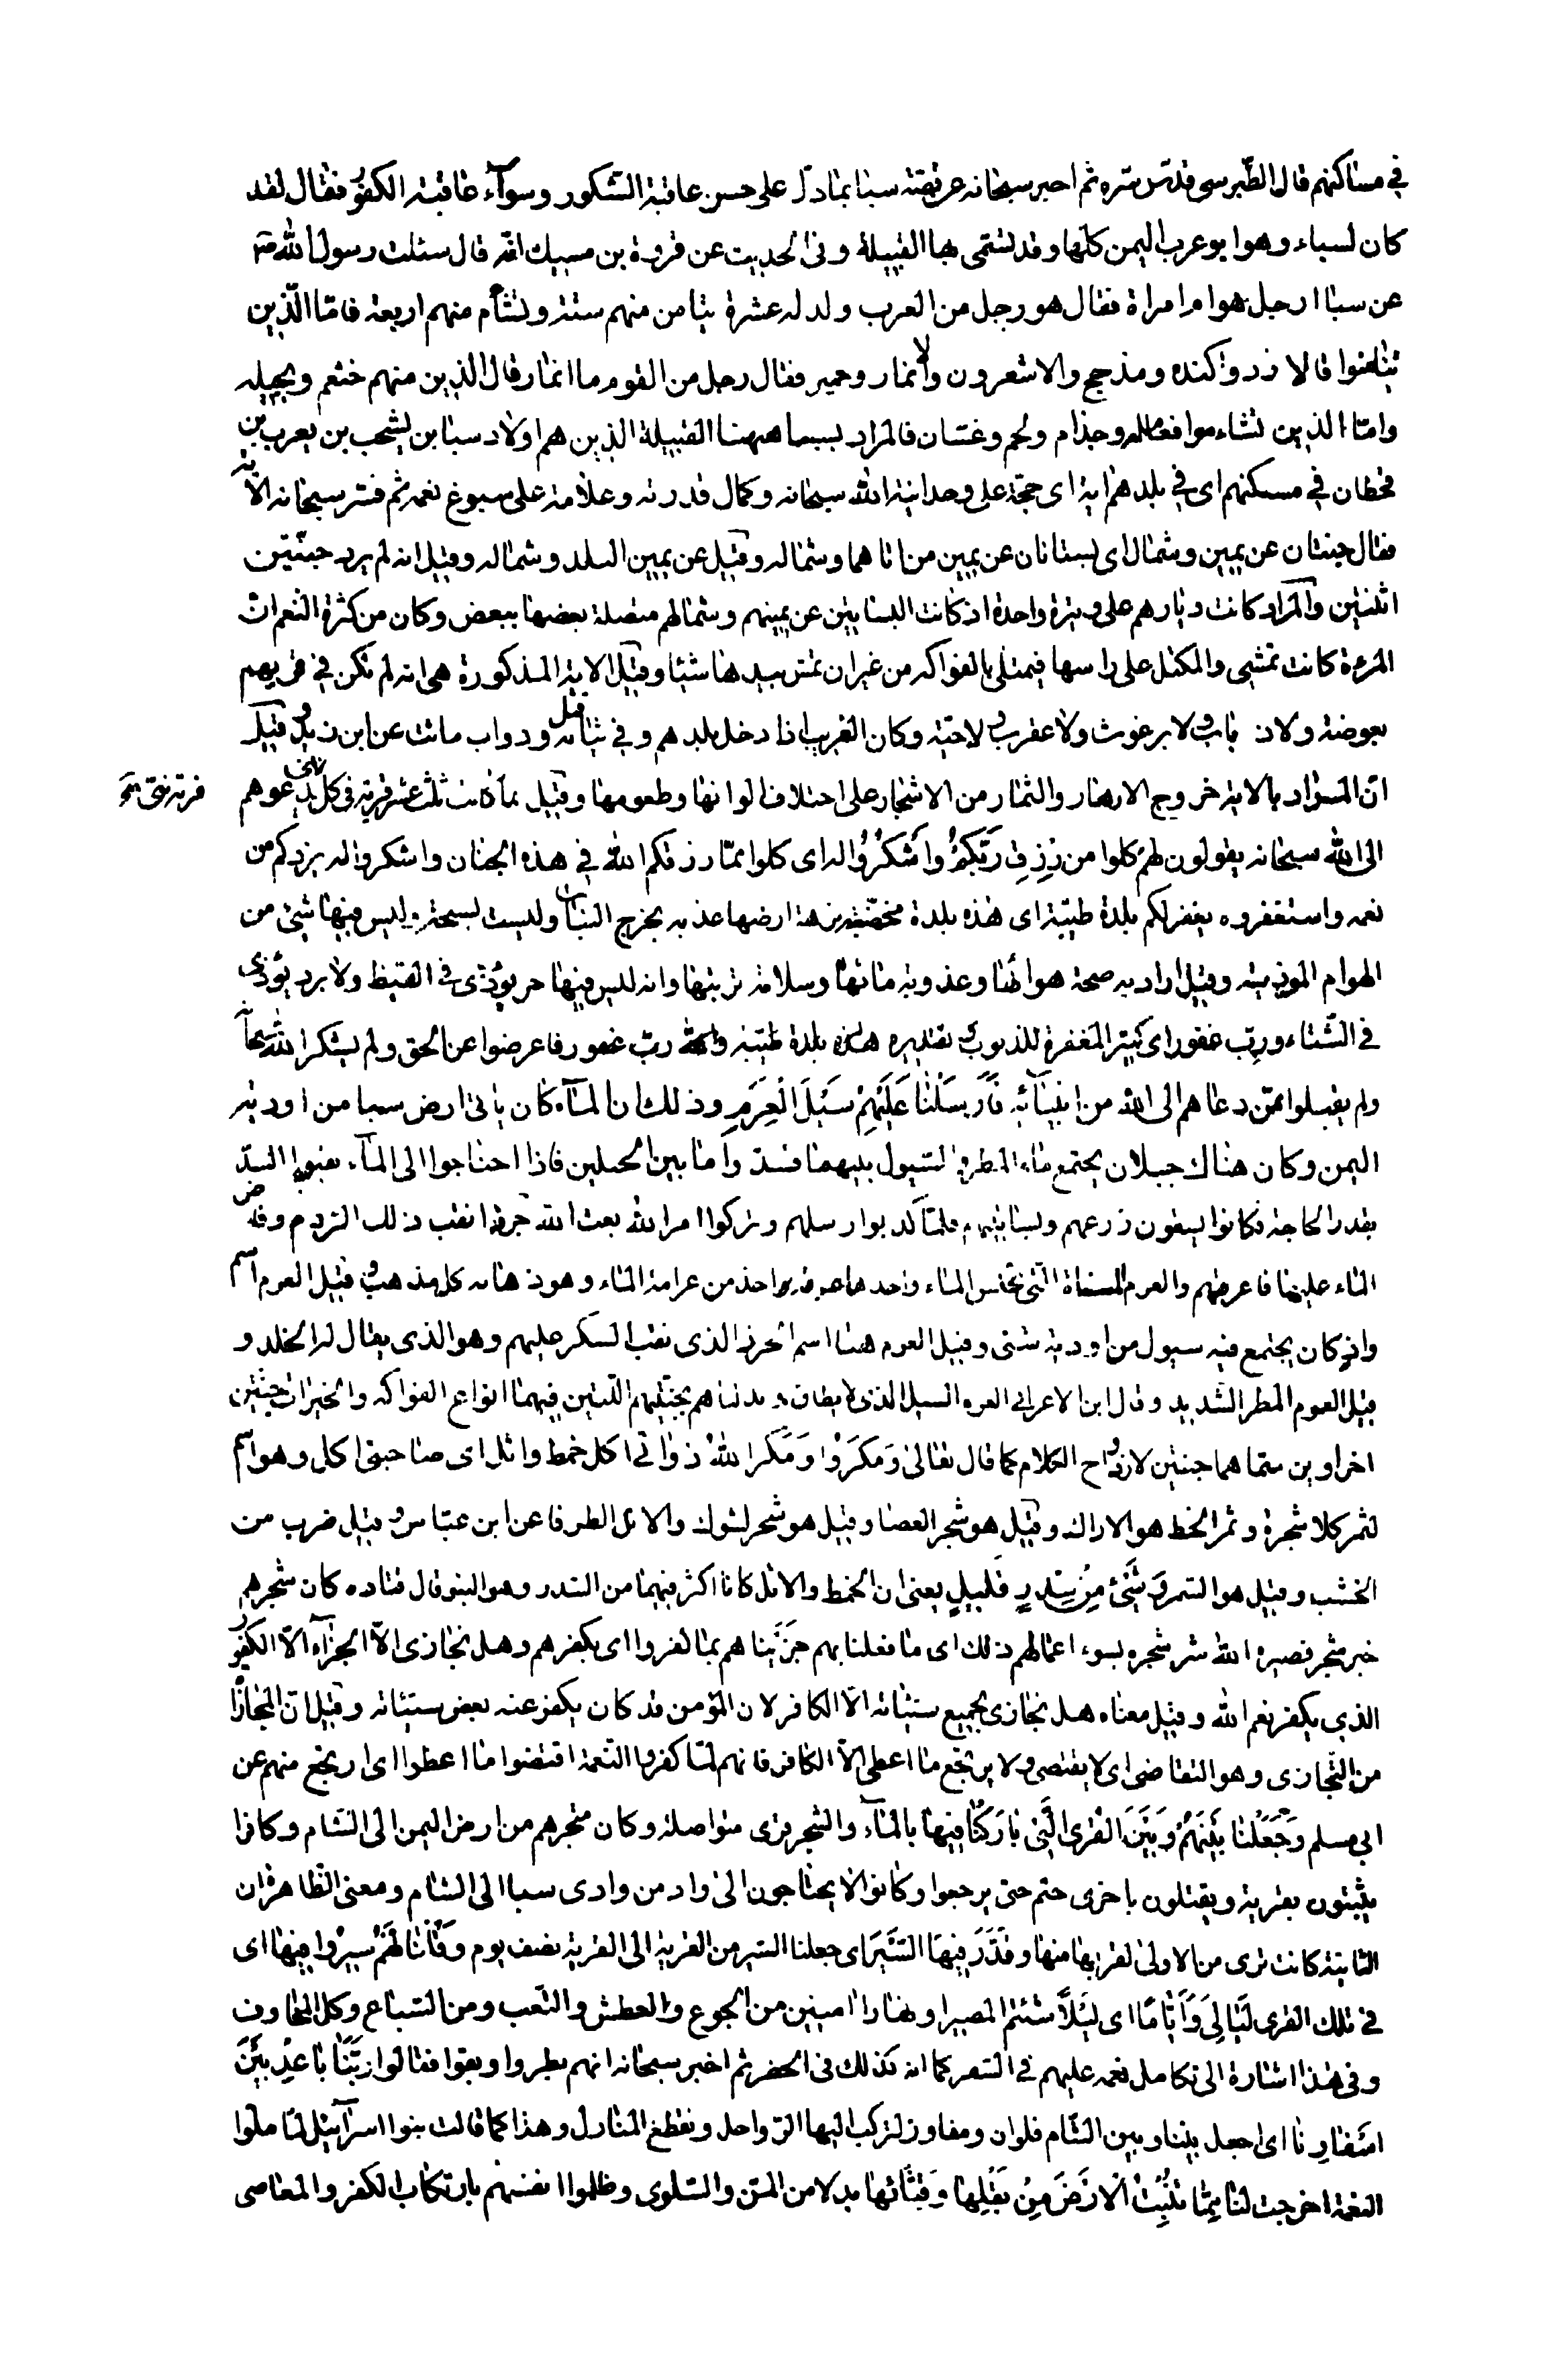 في مساكنهم قال الطّبرسى قدّس سّره ثم اخبر سبحانه عن قصّة سبا بمادلّ على حسن عاقبة الشّكور وسوآء عاقبة الكفور فقال لقد
كان لسباء وهوابوعرب اليمن كلّها وقد تسّمى بها القبيلة وفى الحديث عن فروة بن مسيك انّه قال سئلت رسول الله ص
عن سبا ارجل هوام امراة فقال هو رجل من العرب ولد له عشرة تيامن منهم ستّة وتشأم منهم اربعة فامّا الّذين
تيامنوا فالازد وكنده ومذحج والاشعرون والانمار وحمير فقال رجل من القوم ما انمار قال الذين منهم خثعم وبجيله
وامّا الذين تشاءموا فعامله وجذام ولخم وغسّان فالمراد بسبا ههنا القبيلة الذين هم اولاد سبا بن يشجب بن يعرب بن
قحطان في مسكنهم اى في بلدهم اية اى حجّة على وحدانية الله سبحانه وكمال قدرته وعلامة على سبوغ نعمه ثم فسّر سبحانه الآية
فقال جنتان عن يمين وشمال اى بستانان عن يمين من اتاهما وشماله وقيل عن يمين البلد وشماله وقيل انه لم يرد جنّتين
اثنتين والمراد كانت ديارهم على وتيرة واحدة اذ كانت البساتين عن يمينهم وشمالهم متصلة بعضها ببعض وكان من كثرة النّعم انّ
المرءة كانت تمشى والمكتل على راسها فيمتلى بالفواكه من غير ان تمسّ بيدها شيئا وقيل الاية المذكورة هى انه لم تكن في قريهم
بعوضة ولا ذباب ولا برغوث ولا عقرب ولا حيّة وكان الغريب اذا دخل بلدهم وفي ثيابه قمل ودواب ماتت عن ابن زيد وقيل
انّ المراد بالاية خروج الازهار والثمار من الاشجار على اختلاف الوانها وطعومها وقيل بما كانت ثلث عشر قرية فى كل يدعوهم
قرية نبيّ
الى الله سبحانه يقولون لهم كلوا من رِزقِ رَبِّكُمْ وَاشْكُرُوا له اى كلوا ممّا رزقكم الله في هذه الجنان واشكروا له يزدكم من
نعمه واستغفروه يغفر لكم بلدة طيّبة اى هذه بلدة مخصّبة نزهة ارضها عذبه يخرج النبات وليست بسبخة وليس فيها شىء من
الهوام الموذيه وقيل اراد به صحة هوائها وعذوبة مائها وسلامة تربتها وانه ليس فيها حر يؤذى فى القيظ ولا برد يؤذى
فى الشّتاء وربّ غفور اى كثير المغفرة للذنوب تقديره هذه بلدة طيّبة والله ربّ غفور فاعرضوا عن الحق ولم يشكرا لله سبحانه
ولم يقبلوا ممّن دعاهم الى الله من انبيآئه فَاَرْسَلْنا عَلَيْهِمْ سَيْلَ الْعَرِمِ وذلك ان المآء كان ياتى ارض سبا من اودية
اليمن وكان هناك جبلان يجتمع ماء المطر والسّيول بينهما فسدّوا ما بين الجبلين فاذا احتاجوا الى المآء نقبوا السدّ
بقدر الحاجة فكانوا يسقون زرعهم وبساتينهم فلمّا كذبوا رسلهم وتركوا امر الله بعث الله جرذا نقب ذلك الرّدم وفاض
الماء عليها فاغرقهم والعرم المسناة الّتى تحبس الماء واحدها عرمة واخذ من عرامة الماء وهو ذهابه كل مذهب وقيل العرم اسم
واد كان يجتمع فيه سيول من اودية شتى وقيل العرم هنا اسم الجرذ الذى نقب السكر عليهم وهو الذى يقال له الخلد و
قيل العرم المطر الشديد وقال ابن الاعرابى العرم السيل الذى لا يطاق وبدلناهم بجنّتيهم اللّتين فيهما انواع الفواكه والخيرات جنّتين
اخراوين سمّاهما جنتين لازدواح الكلام كما قال تعالى وَمَكَرَوْا وَمَكَرَ اللهُ ذواتى اكل خمط واثل اى صاحبتى اكل وهو اسم
لثمر كلا شجرة وثمر الخمط هو الاراك وقيل هو شجر الغضا وقيل هو شجر له شوك والاثل الطرفا عن ابن عبّاس وقيل ضرب من
الخشب وقيل هو السّمر وَشَىْءٍ مِنْ سِدرٍ قَليلٍ يعنى ان الخمط والاثل كانا اكثر فيهما من السّدر وهو النبق وقال قتاده كان شجرهم
خير شجر فصيره الله شر شجر بسوء اعمالهم ذلك اى ما فعلنا بهم جَزَيْنا هم بما كفروا اى بكفرهم وهل نجازى الّا الجزآء الّا الكفور
الذي يكفر نعم الله وقيل معناه هل نجازى بجميع سيئاته الّا الكافر لان المؤمن قد كان يكفر عنه بعض سيئاته وقيل انّ المجازاة
من التّجازى وهو التقاضى اى لا يقتضى ولا يرتجع ما اعطى الّا الكافر فانهم لمّا كفروا النّعمة اقتضوا ما اعطوا اى ارتجع منهم عن
ابى مسلم وَجَعَلْنا بَيْنَهُمْ وَبَيْنَ الْقُرى الَّتى بارَكْنا فيها بالمآء والشجر قرى متواصلة وكان متجرهم من ارض اليمن الى الشام وكانوا
يبيتون بقرية ويقيلون باخرى حتم حتى يرجعوا وكانوا لا يحتاجون الى زاد من وادى سبا الى الشام ومعنى الظاهرة ان
الثانية كانت ترى من الاولى لقربها منها وَقَدَّرَ فِيهَا السَّيْرَ اى جعلنا السّير من القرية الى القرية نصف يوم وَقُلْنا لَهُمْ سيرُوا فيها اى
فى تلك القرى لَيالِىَ وَاَيّامًا اى لَيْلاً شئتم المصير او نهارا امينين من الجوع والعطش والتّعب ومن السّباع وكل المخاوف
وفى هذا اشارة الى تكامل نعمه عليهم فى السّفر كما انه كذلك فى الحضر ثم اخبر سبحانه انهم بطروا وبغوا فقالوا رَبَّنا باعِدْ بَيْنَ
اسْفارِ نا اى اجعل بيننا وبين الشّام فلوات ومفاوز لنركب اليها الرّواحل ونقطع المنازل وهذا كما قالت بنوا اسرآئيل لمّا ملّوا
النعمة اخرجت لنا مِمّا تُنْبِتُ الارْضَ مِنْ بَقْلِها وَقِثّائها بدلا من المنّ والسّلوى وظلموا انفسهم بارتكاب الكفر والمعاصى